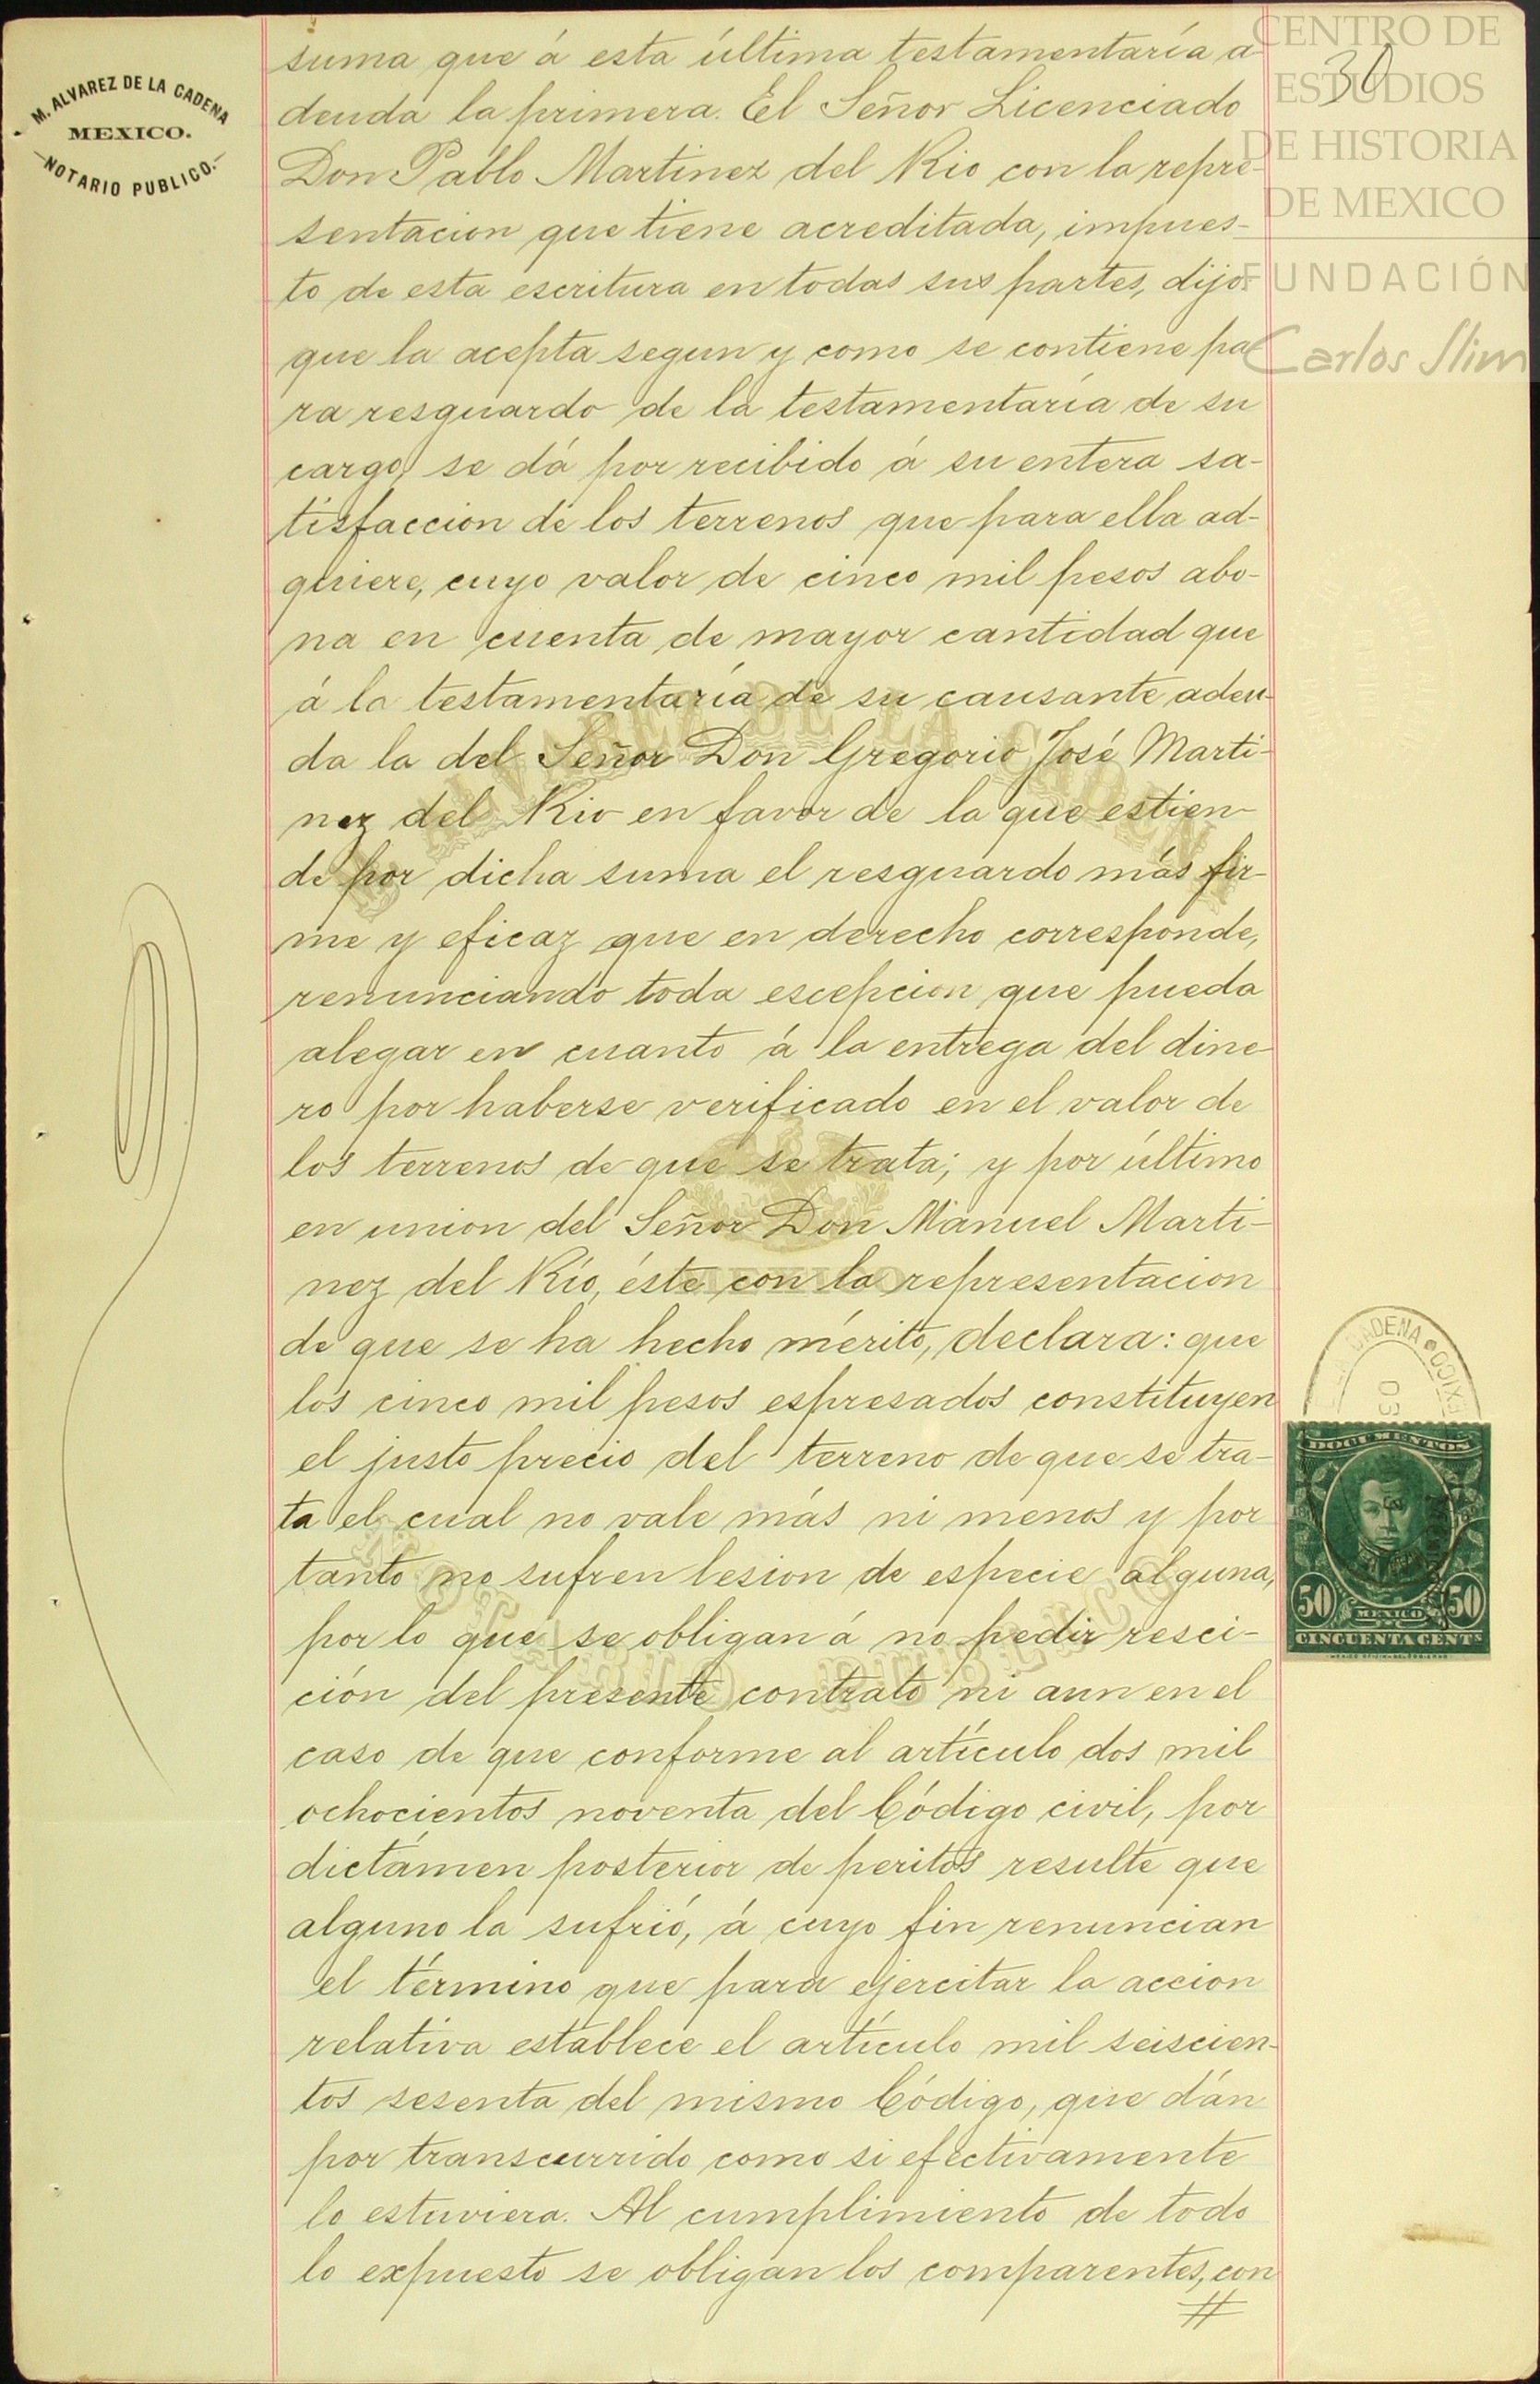 M. ALVAREZ DE LA CADENA
MEXICO.
NOTARIO PUBLICO.
CENTRO DE
ESTUDIOS
DE HISTORIA
DE MEXICO
FUNDACIÓN
Carlos Slim
30
suma que á esta última testamentaría a-
deuda la primera. El Señor Licenciado
Don Pablo Martinez del Rio con la repre-
sentacion que tiene acreditada, impues-
to de esta escritura en todas sus partes, dijo:
que la acepta segun y como se contiene pa
ra resguardo de la testamentaría de su
cargo, se dá por recibido á su entera sa-
tisfaccion de los terrenos que para ella ad-
quiere, cuyo valor de cinco mil pesos abo-
na en cuenta de mayor cantidad que
á la testamentaría de su causante adeu-
da la del Señor Don Gregorio José Marti-
nez del Rio en favor de la que estien-
de por dicha suma el resguardo más fir-
me y eficaz que en derecho corresponde,
renunciando toda escepcion que pueda
alegar en cuanto á la entrega del dine-
ro por haberse verificado en el valor de
los terrenos de que se trata; y por último
en union del Señor Don Manuel Marti-
nez del Río, éste con la representacion
de que se ha hecho mérito, declara: que
los cinco mil pesos espresados constituyen
el justo precio del terreno de que se tra-
ta el cual no vale más ni menos y por
tanto no sufren lesion de especie alguna,
por lo que se obligan á no pedir resci-
ción del presente contrato ni aun en el
caso de que conforme al artículo dos mil
ochocientos noventa del Código civil, por
dictámen posterior de peritos resulte que
alguno la sufrió, á cuyo fin renuncian
el término que para ejercitar la accion
relativa establece el artículo mil seiscien-
tos sesenta del mismo Código, que dán
por transcurrido como si efectivamente
lo estuviera. Al cumplimiento de todo
lo expuesto se obligan los comparentes, con
CADENA
DOCUMENTOS
50 MEXICO 50
CINCUENTA CENTS